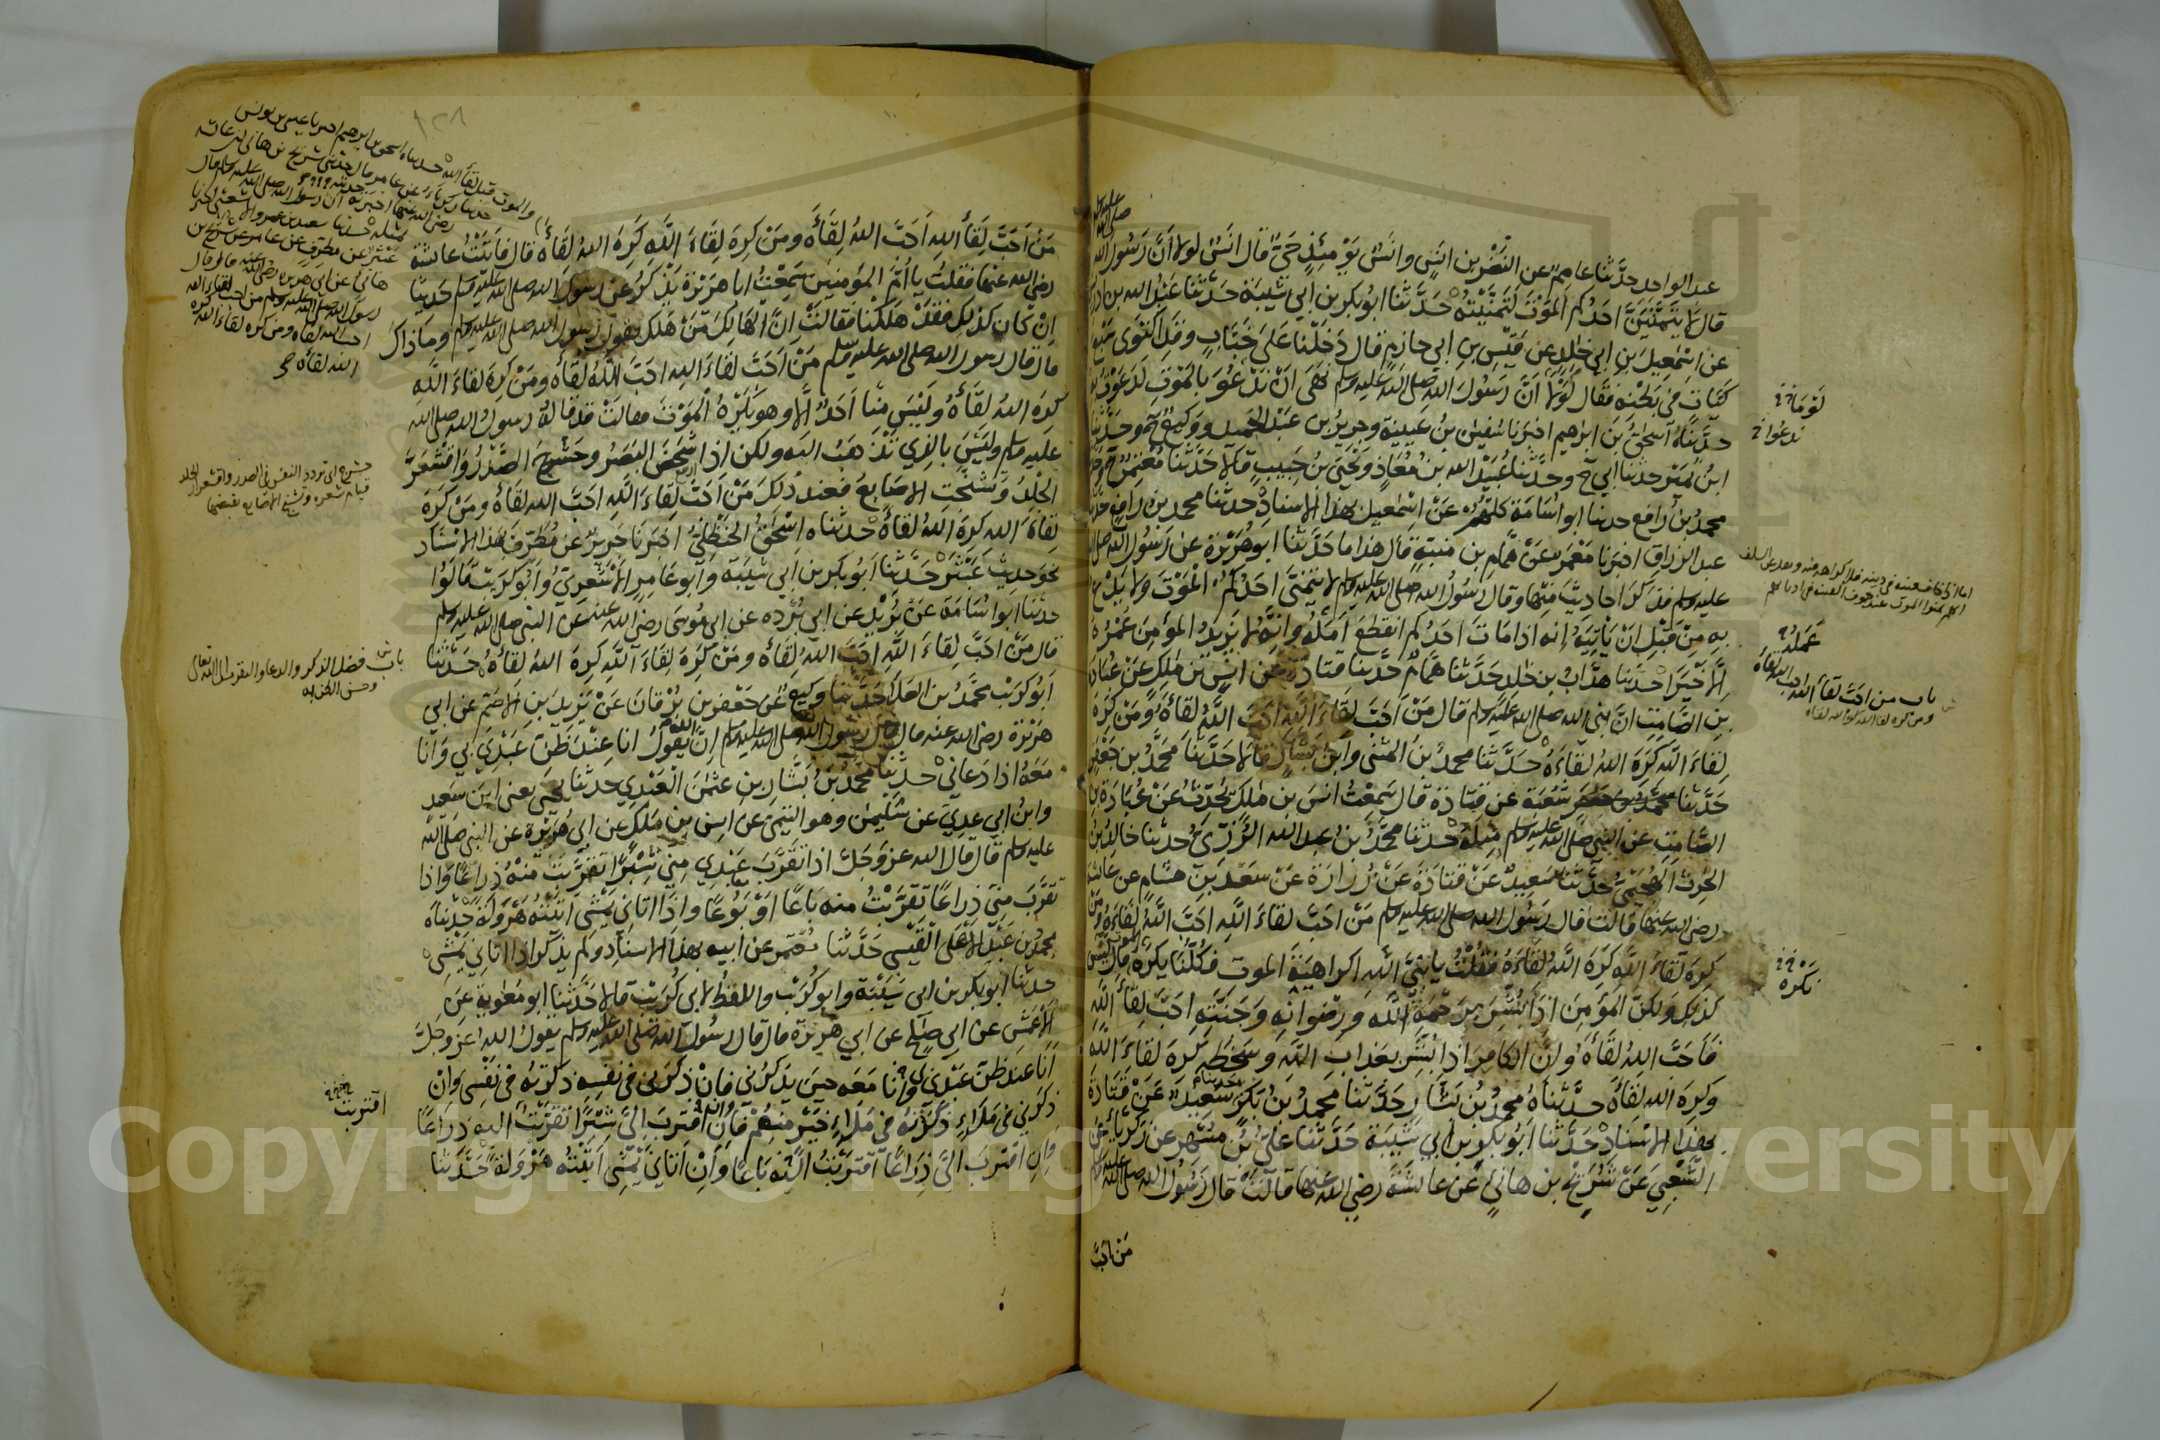 صلى الله عليه وسلم
عبد الواحد حدثنا عاصم عن النضر بن انس وانس يومئذ حي قال انس لولا ان رسول الله
قال لا يتمنين احدكم الموت لتمنيته حدثنا ابو بكر بن ابي شيبة حدثنا عبد الله بن ادريس
عن اسمعيل بن ابي خالد عن قيس بن ابي حازم قال دخلنا على خباب وقد اكتوى سبع
كيات في بطنه فقال لولا ان رسول الله صلى الله عليه وسلم نهى ان ندعو بالموت لدعوت به
حدثناه اسحق بن ابراهيم اخبرنا سفين بن عيينة وجرير بن عبد الحميد ووكيع ح وحدثنا
ابن نمير حدثنا ابي ح وحدثنا عبيد الله بن معاذ ويحيى بن حبيب قالا حدثنا معتمر ح وحدثنا
محمد بن رافع حدثنا ابو اسامة كلهم عن اسمعيل بهذا الاسناد حدثنا محمد بن رافع حدثنا
عبد الرزاق اخبرنا معمر عن همام بن منبه قال هذا ما حدثنا ابو هريرة عن رسول الله صلى الله
عليه وسلم فذكر احاديث منها وقال رسول الله صلى الله عليه وسلم لا يتمنى احدكم الموت ولا يدع
به من قبل ان ياتيه انه اذا مات احدكم انقطع امله وانه لا يزيد المؤمن عمره
الا خيرا حدثنا هداب بن خالد حدثنا همام حدثنا قتادة عن انس بن ملك عن عبادة
بن الصامت ان نبي الله صلى الله عليه وسلم قال من احب لقاء الله احب الله لقاءه ومن كره
لقاء الله كره الله لقاءه حدثنا محمد بن المثنى وابن بشار قالا حدثنا محمد بن جعفر
حدثنا شعبة عن قتادة قال سمعت انس بن ملك يحدث عن عبادة بن
الصامت عن النبي صلى الله عليه وسلم مثله حدثنا محمد بن عبد الله الرزي حدثنا خالد بن
الحرث الهجيمي حدثنا سعيد عن قتادة عن زرارة عن سعد بن هشام عن عائشة
رضى الله عنها قالت قال رسول الله صلى الله عليه وسلم من احب لقاء الله احب الله لقاءه ومن
كره لقاء الله كره الله لقاءه فقلت يا نبي الله اكراهية الموت فكلنا يكره الموت قال ليس
كذلك ولكن المؤمن اذا بشر برحمة الله ورضوانه وجنته احب لقاء الله
فاحب الله لقاءه وان الكافر اذا بشر بعذاب الله وسخطه كره لقاء الله
وكره الله لقاءه حدثناه محمد بن بشار حدثنا محمد بن بكر حدثنا سعيد عن قتادة
بهذا الاسناد حدثنا ابو بكر بن ابي شيبة حدثنا علي بن مسهر عن زكرياء عن
الشعبي عن شريح بن هانئ عن عائشة رضي الله عنها قالت قال رسول الله صلى الله عليه وسلم
من احب
لقوما
ندعوا
عمله
باب من احب لقاء الله احب الله لقاءه
ومن كره لقاء الله كره الله لقاءه
نكره
من احب لقاء الله احب الله لقاءه ومن كره لقاء الله كره الله لقاءه قال فاتيت عائشة
رضي الله عنها فقلت يا ام المؤمنين سمعت ابا هريرة يذكر عن رسول الله صلى الله عليه وسلم حديثا
ان كان كذلك فقد هلكنا فقالت ان الهالك من هلك بقول رسول الله صلى الله عليه وسلم وما ذاك
قال قال رسول الله صلى الله عليه وسلم من احب لقاء الله احب الله لقاءه ومن كره لقاء الله
كره الله لقاءه وليس منا احد الا وهو يكره الموت فقالت قد قاله رسول الله صلى الله
عليه وسلم وليس بالذي تذهب اليه ولكن اذا شخص البصر وحشرج الصدر واقشعر
الجلد وتشنجت الاصابع فعند ذلك من احب لقاء الله احب الله لقاءه ومن كره
لقاء الله كره الله لقاءه حدثناه اسحق الحنظلي اخبرنا جرير عن مطرف بهذا الاسناد
نحو حديث عبثر حدثنا ابو بكر بن ابي شيبة وابو عامر الاشعري وابو كريب قالوا
حدثنا ابو اسامة عن بريد عن ابي بردة عن ابي موسى رضي الله عنه عن النبي صلى الله عليه وسلم
قال من احب لقاء الله احب الله لقاءه ومن كره لقاء الله كره الله لقاءه حدثنا
ابو كريب محمد بن العلاء حدثنا وكيع عن جعفر بن برقان عن يزيد بن الاصم عن ابي
هريرة رضى الله عنه قال قال رسول الله صلى الله عليه وسلم ان الله يقول انا عند ظن عبدي بي وانا
معه اذا دعاني حدثنا محمد بن بشار بن عثمن العبدي حدثنا يحيى يعني ابن سعيد
وابن ابي عدي عن سليمن وهو التيمي عن انس بن ملك عن ابي هريرة عن النبي صلى الله
عليه وسلم قال قال الله عز وجل اذا تقرب عبدي مني شبرا تقربت منه ذراعا واذا
تقرب مني ذراعا تقربت منه باعا او بوعا واذا اتاني يمشي اتيته هرولة حدثناه
محمد بن عبد الاعلى القيسي حدثنا معتمر عن ابيه بهذا الاسناد ولم يذكر اذا اتاني يمشي
حدثنا ابو بكر بن ابي شيبة وابو كريب واللفظ لابي كريب قالا حدثنا ابو معوية عن
الاعمش عن ابي صلح عن ابي هريرة قال قال رسول الله صلى الله عليه وسلم يقول الله عز وجل
انا عند ظن عبدي بي وانا معه حين يذكرني فان ذكرني في نفسه ذكرته في نفسي وان
ذكرني في ملاء ذكرته في ملاء خير منهم وان اقترب الي شبرا تقربت اليه ذراعا
وان اقترب الي ذراعا اقتربت اليه باعا وان اتاني يمشي اتيته هرولة حدثنا
والموت قبل لقاء الله حدثناه اسحق بن ابراهيم اخبرنا عيسى بن يونس
حدثنا زكرياء عن عامر قال حدثني شريح بن هانئ ان عائشة
رضي الله عنها اخبرته ان رسول الله صلى الله عليه وسلم قال
بمثله حدثنا سعيد بن عمرو الاشعثي اخبرنا
عبثر عن مطرف عن عامر عن شريح بن
هانئ عن ابي هريرة رضي الله عنه قال قال
رسول الله صلى الله عليه وسلم من احب لقاء الله
احب الله لقاءه ومن كره لقاء الله كره
الله لقاءه
حشرج اي تردد النفس في الصدر واقشعر الجلد
قيام شعره وتشنج الاصابع تقبضها
باب فضل الذكر والدعاء والتقرب الى الله تعالى
وحسن الظن به
اقتربت
Copyright © King Saud University